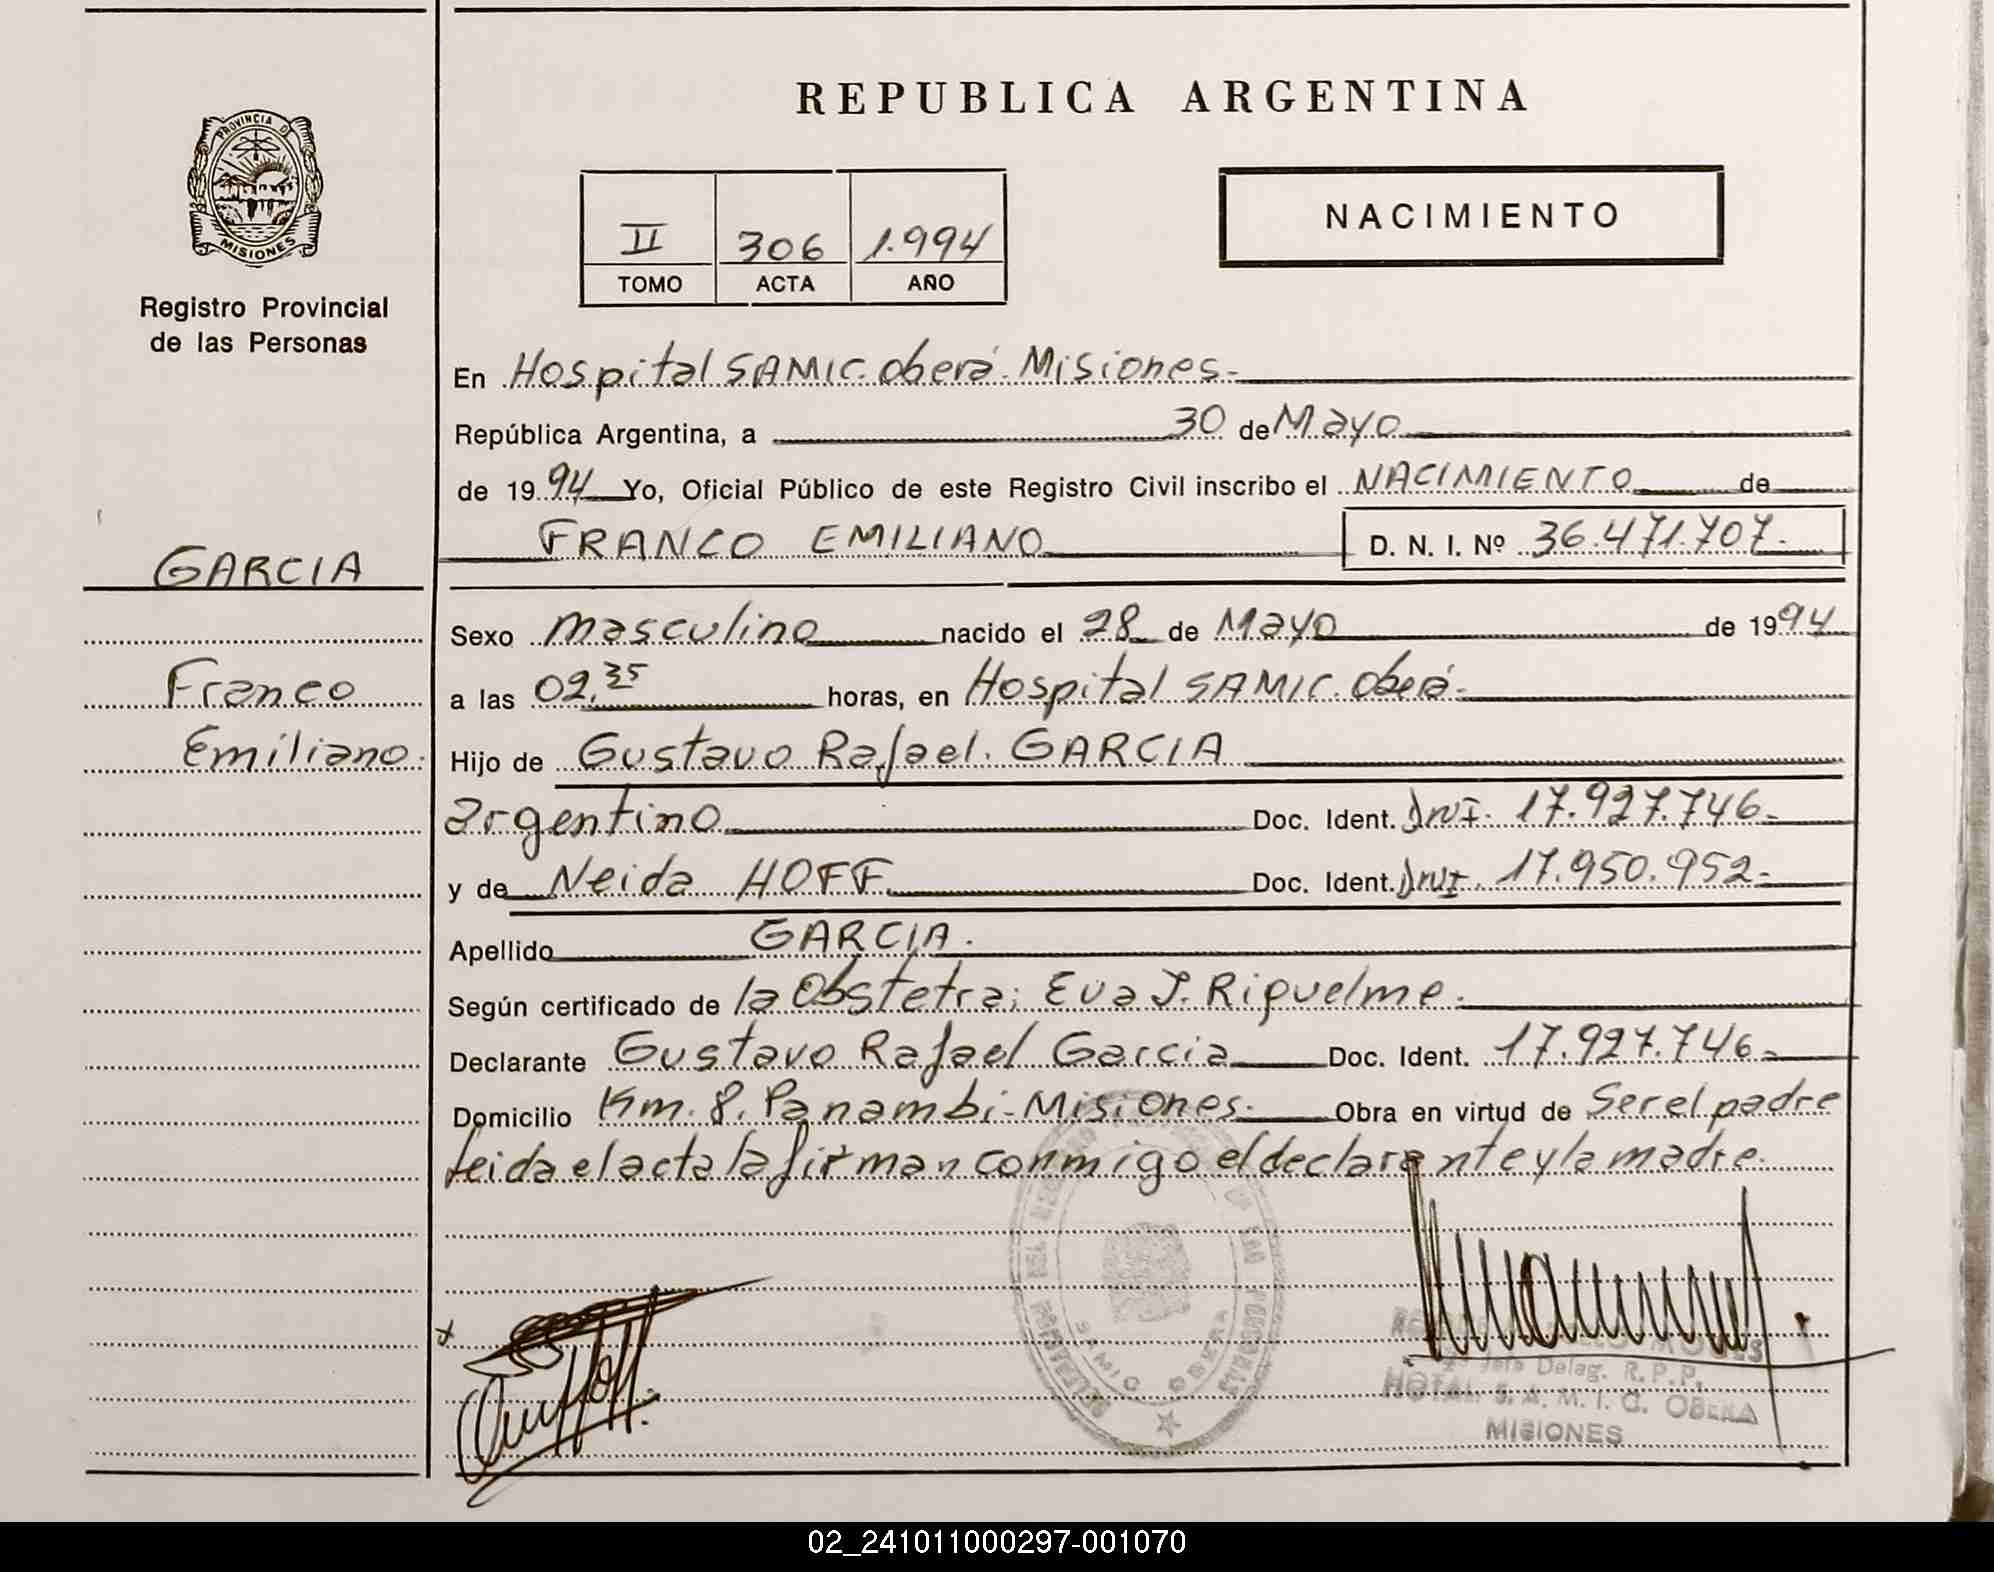 REPUBLICA ARGENTINA
PROVINCIA DE
MISIONES
Registro Provincial
de las Personas
II 306 1.994
TOMO ACTA AÑO
NACIMIENTO
En Hospital SAMIC. Oberá. Misiones.
República Argentina, a 30 de Mayo
de 1994 Yo, Oficial Público de este Registro Civil inscribo el NACIMIENTO de
FRANCO EMILIANO D. N. I. Nº 36.471.707.
GARCIA
Franco
Emiliano.
Sexo masculino nacido el 28 de Mayo de 1994
a las 02.35 horas, en Hospital SAMIC. Oberá.
Hijo de Gustavo Rafael. GARCIA
argentino Doc. Ident. DNI. 17.927.746.
y de Neida HOFF Doc. Ident. DNI. 17.950.952.
Apellido GARCIA.
Según certificado de la Obstetra; Eva J. Riquelme.
Declarante Gustavo Rafael Garcia Doc. Ident. 17.927.746.
Domicilio Km. 8. Panambi-Misiones. Obra en virtud de Ser el padre
leida el acta la firman conmigo el declarante y la madre.
SAMIC OBERA
Jefe Deleg. R.P.P.
S.A.M.I.C. OBERA
MISIONES
02_241011000297-001070